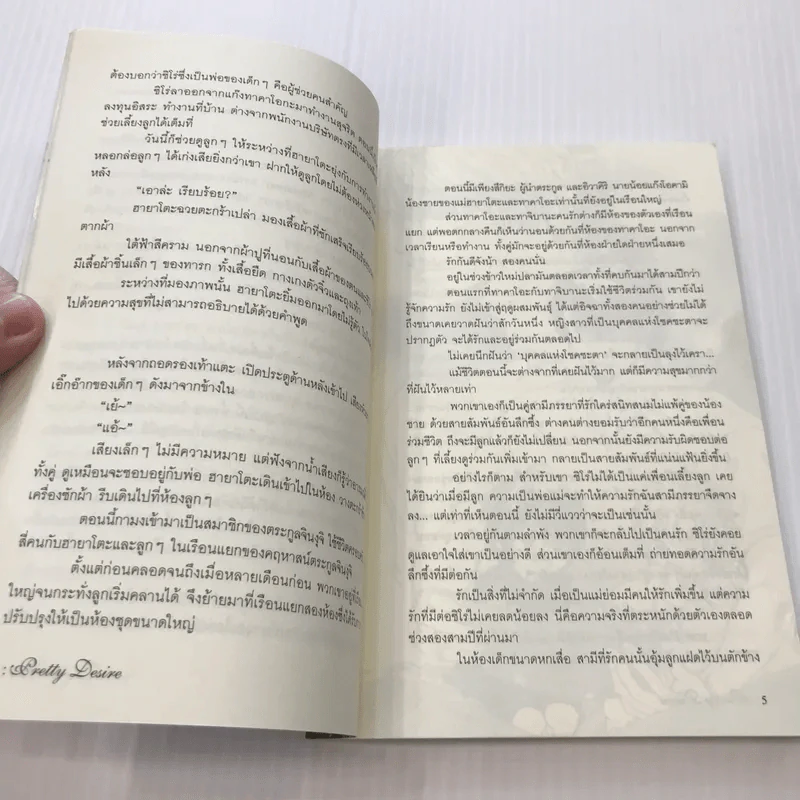 ต้องบอกว่าชิโร่ซึ่งเป็นพ่อของเด็กๆ คือผู้ช่วยคนสำคัญ
ชิโร่ลาออกจากแก๊งทาคาโอกะมาทำงานสุจริต
ลงทุนอิสระ ทำงานที่บ้าน ต่างจากพนักงานบริษัทตรงที่มี
ช่วยเลี้ยงลูกได้เต็มที่
วันนี้ก็ช่วยดูลูกๆ ให้ระหว่างที่ฮายาโตะยุ่งกับการ
หลอกล่อลูกๆ ได้เก่งเสียยิ่งกว่าเขา ฝากให้ดูลูกโดยไม่ต้อง
หลัง
“เอาล่ะ เรียบร้อย?”
ฮายาโตะฉวยตะกร้าเปล่า มองเสื้อผ้าที่ซักเสร็จเรียบร้อย
ตากผ้า
ใต้ฟ้าสีคราม นอกจากผ้าปูที่นอนกับเสื้อผ้าของตน
มีเสื้อผ้าชิ้นเล็กๆ ของทารก ทั้งเสื้อยืด กางเกงตัวจิ๋วและถุงเท้า
ระหว่างที่มองภาพนั้น ฮายาโตะยิ้มออกมาโดยไม่รู้ตัว
ไปด้วยความสุขที่ไม่สามารถอธิบายได้ด้วยคำพูด
หลังจากถอดรองเท้าแตะ เปิดประตูด้านหลังเข้าไป
เอิ๊กอ๊ากของเด็กๆ ดังมาจากข้างใน
“เย้~”
“แอ้~”
เสียงเล็กๆ ไม่มีความหมาย แต่ฟังจากน้ำเสียงก็รู้ว่า
ทั้งคู่ ดูเหมือนจะชอบอยู่กับพ่อ ฮายาโตะเดินเข้าไปในห้อง
เครื่องซักผ้า รีบเดินไปที่ห้องลูกๆ
ตอนนี้กามงเข้ามาเป็นสมาชิกของตระกูลจินงุจิ
สี่คนกับฮายาโตะและลูกๆ ในเรือนแยกของคฤหาสน์ตระกูลจินงุจิ
ตั้งแต่ก่อนคลอดจนถึงเมื่อหลายเดือนก่อน พวกเขาอยู่ที่
ใหญ่จนกระทั่งลูกเริ่มคลานได้ จึงย้ายมาที่เรือนแยกสองห้อง
ปรับปรุงให้เป็นห้องชุดขนาดใหญ่
: Pretty Desire
ตอนนี้มีเพียงสึกิยะ ผู้นำตระกูล และอิวาคิริ นายน้อยแก๊งโอคามิ
น้องชายของแม่ฮายาโตะและทาคาโอะเท่านั้นที่ยังอยู่ในเรือนใหญ่
ส่วนทาคาโอะและทาจิบานะคนรักต่างก็มีห้องของตัวเองที่เรือน
แยก แต่พอตกกลางคืนก็เห็นว่านอนด้วยกันที่ห้องของทาคาโอะ นอกจาก
เวลาเรียนหรือทำงาน ทั้งคู่มักจะอยู่ด้วยกันที่ห้องฝ่ายใดฝ่ายหนึ่งเสมอ
รักกันดีจังน้า สองคนนั้น
อยู่ในช่วงข้าวใหม่ปลามันตลอดเวลาทั้งที่คบกันมาได้สามปีกว่า
ตอนแรกที่ทาคาโอะกับทาจิบานะเริ่มใช้ชีวิตร่วมกัน เขายังไม่
รู้จักความรัก ยังไม่เข้าสู่ฤดูผสมพันธุ์ ได้แต่อิจฉาทั้งสองคนอย่างช่วยไม่ได้
ถึงขนาดเคยวาดฝันว่าสักวันหนึ่ง หญิงสาวที่เป็นบุคคลแห่งโชคชะตาจะ
ปรากฏตัว จะได้รักและอยู่ร่วมกันตลอดไป
ไม่เคยนึกฝันว่า ‘บุคคลแห่งโชคชะตา’ จะกลายเป็นลุงไว้เครา...
แม้ชีวิตตอนนี้จะต่างจากที่เคยฝันไว้มาก แต่ก็มีความสุขมากกว่า
ที่ฝันไว้หลายเท่า
พวกเขาเองก็เป็นคู่สามีภรรยาที่รักใคร่สนิทสนมไม่แพ้คู่ของน้อง
ชาย ด้วยสายสัมพันธ์อันลึกซึ้ง ต่างคนต่างยอมรับว่าอีกคนหนึ่งคือเพื่อน
ร่วมชีวิต ถึงจะมีลูกแล้วก็ยังไม่เปลี่ยน นอกจากนั้นยังมีความรับผิดชอบต่อ
ลูกๆ ที่เลี้ยงดูร่วมกันเพิ่มเข้ามา กลายเป็นสายสัมพันธ์ที่แน่นแฟ้นยิ่งขึ้น
อย่างไรก็ตาม สำหรับเขา ชิโร่ไม่ได้เป็นแค่เพื่อนเลี้ยงลูก เคย
ได้ยินว่าเมื่อมีลูก ความเป็นพ่อแม่จะทำให้ความรักฉันสามีภรรยาจืดจาง
ลง... แต่เท่าที่เห็นตอนนี้ ยังไม่มีวี่แววว่าจะเป็นเช่นนั้น
เวลาอยู่กันตามลำพัง พวกเขาก็จะกลับไปเป็นคนรัก ชิโร่ยังคอย
ดูแลเอาใจใส่เขาเป็นอย่างดี ส่วนเขาเองก็อ้อนเต็มที่ ถ่ายทอดความรักอัน
ลึกซึ้งที่มีต่อกัน
รักเป็นสิ่งที่ไม่จำกัด เมื่อเป็นแม่ย่อมมีคนให้รักเพิ่มขึ้น แต่ความ
รักที่มีต่อชิโร่ไม่เคยลดน้อยลง นี่คือความจริงที่ตระหนักด้วยตัวเองตลอด
ช่วงสองสามปีที่ผ่านมา
ในห้องเด็กขนาดหกเสื่อ สามีที่รักคนนั้นอุ้มลูกแฝดไว้บนตักข้าง
5